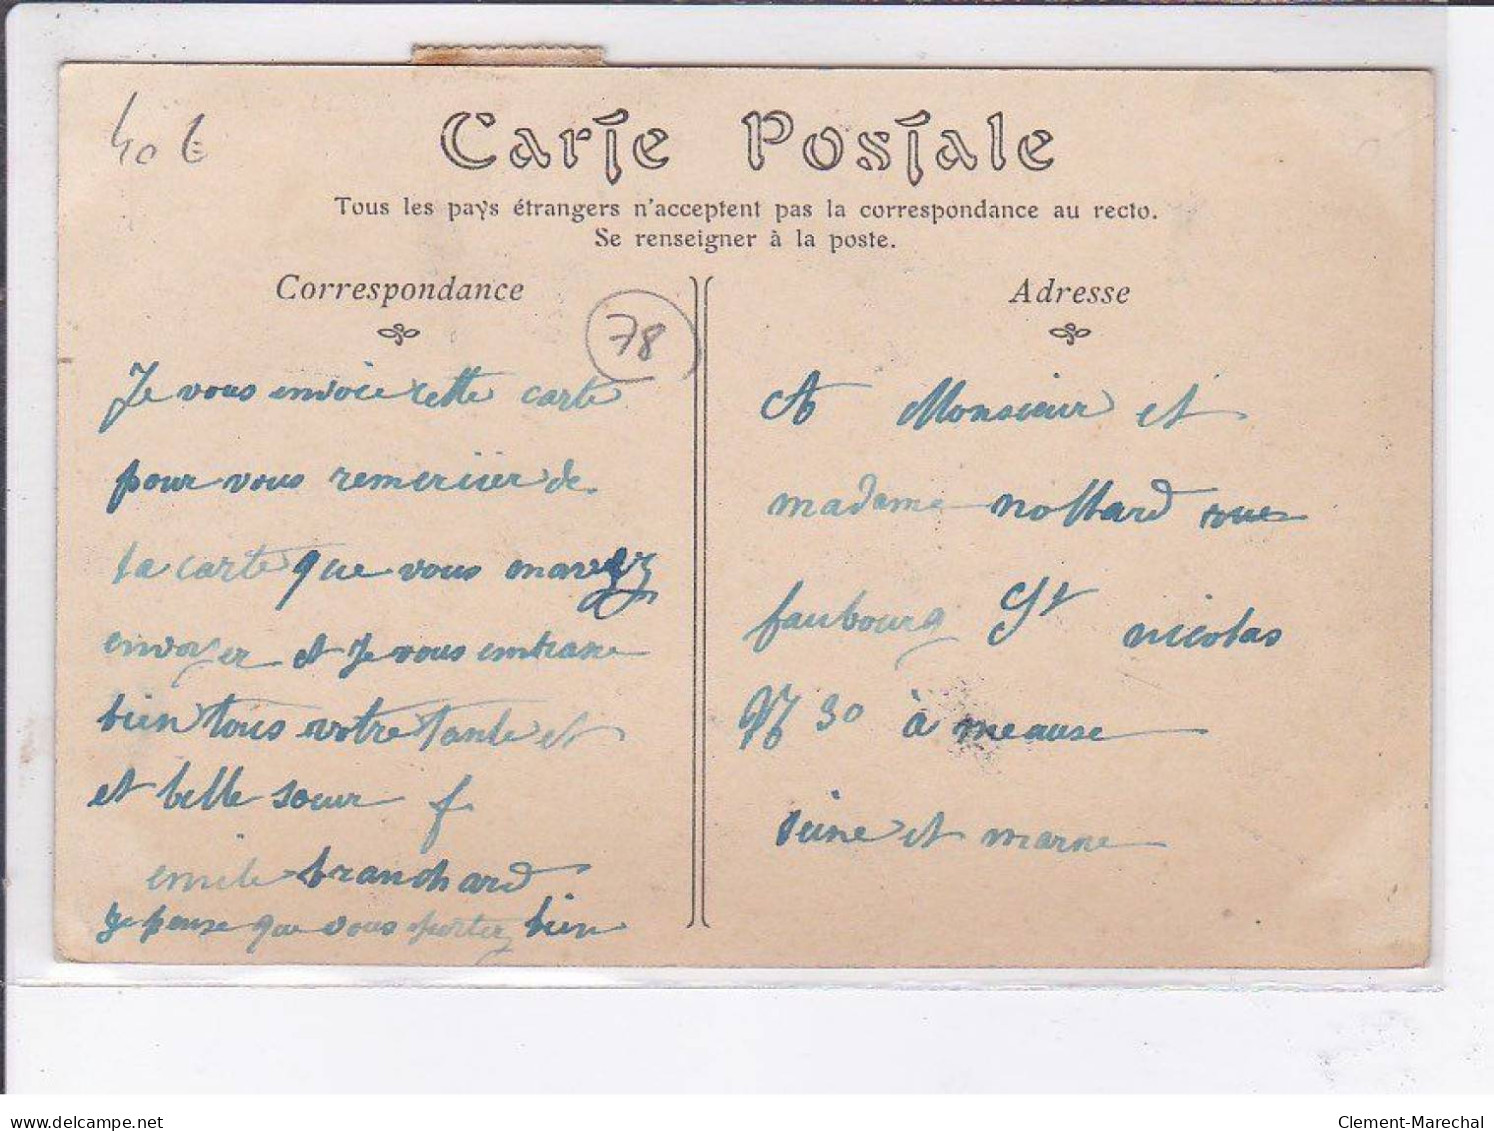 40 €
Carte Postale
Tous les pays étrangers n'acceptent pas la correspondance au recto.
Se renseigner à la poste.
Correspondance
78
Je vous envoie cette carte
pour vous remerciier de
la carte que vous mavez
envoyer et je vous embrasse
bien tous votre tante et
et belle sœur f
emile branchard
je pense que vous portez bien
Adresse
A Monsieur et
madame nottard rue
faubourg St nicolas
N° 30 à meause
seine et marne
delcampe.net
Clement-Marechal